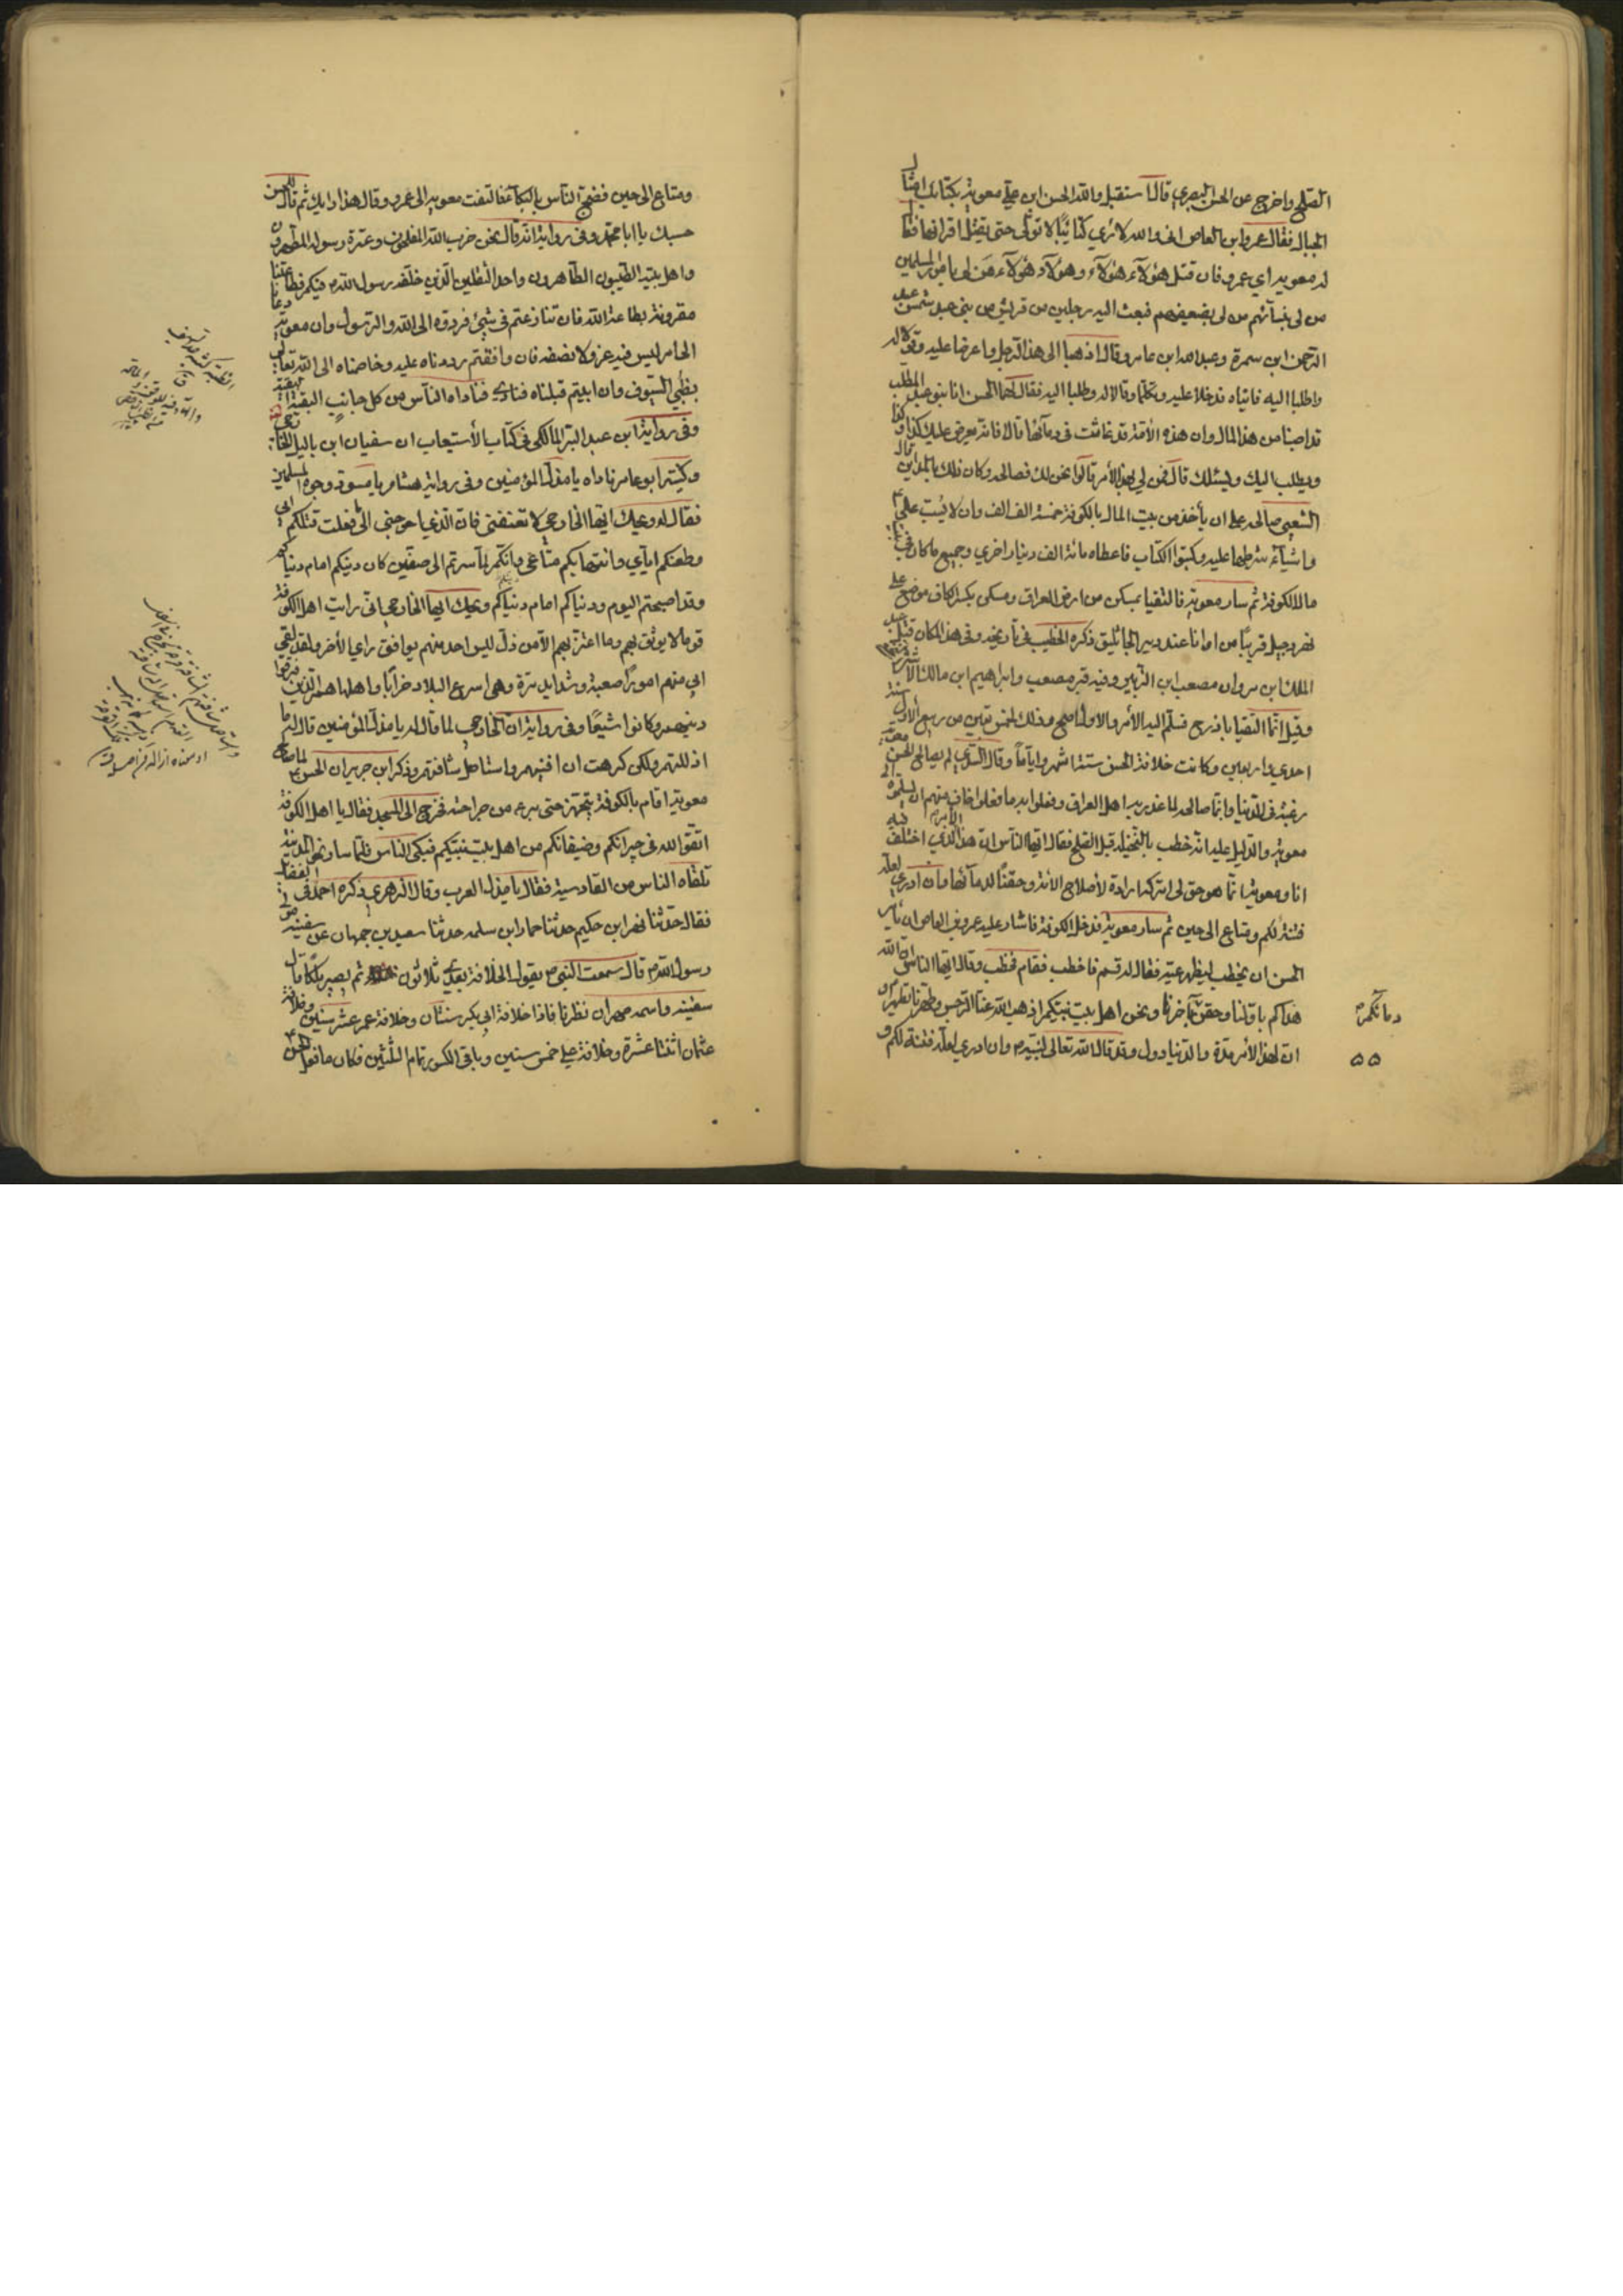 الصلح واخرج عن الحسن البصري قال استقبل والله الحسن ابن علي معوية بكتائب امثال
الجبال فقال عمرو ابن العاص اني والله لاري كتائبًا لا تولى حتى يقتل اقرانها فقال
له معوية اي عمرو فان قتل هؤلآء هؤلآء وهؤلآء هؤلآء من لي بامور المسلمين
من لي بنسآئهم من لي بضيعتهم فبعث اليه رجلين من قريش من بني عبد شمس عبد
الرحمن ابن سمرة وعبد الله ابن عامر وقال اذهبا الى هذا الرجل واعرضا عليه وقولا له
واطلبا اليه فاتياه فدخلا عليه وتكلما وقالا له وطلبا اليه فقال لهما الحسن انا بنو عبد المطلب
قد اصبنا من هذا المال وان هذه الأمة قد عاثت في دمآئها قالا فانه يعرض عليك كذا وكذا
ويطلب اليك ويسئلك قال فمن لي بهذا الأمر قالوا نحن لك فصالحه وكان ذلك بالمداين قال
الشعبي صالحه على ان يأخذ من بيت المال بالكوفة خمسة الف الف وان لا يسب علي
واشيآء شرطها عليه وكتبوا الكتاب فاعطاه مائة الف دينار اخري وجميع ما كان في بيت
مال الكوفة ثم سار معوية فالتقيا بمسكن من ارض العراق ومسكن بكسر الكاف موضع على
نهر دجيل قريبًا من اوانا عند دير الجاثليق ذكره الخطيب في تاريخه وفي هذا المكان قتل عبد
الملك ابن مروان مصعب ابن الزبير وفيه قبر مصعب وابراهيم ابن مالك الأشتر
وقيل انما التقيا باذرح فسلم اليه الأمر والاول اصح وذلك لخمس بقين من ربيع الاول سنة
احدي واربعين وكانت خلافة الحسن ستة اشهر واياماً وقال السدي لم يصالح الحسن معوية
رغبة في الدنيا وانما صالحه لما غدر به اهل العراق وفعلوا به ما فعلوا خاف منهم ان يسلموه الى
معوية والدليل عليه انه خطب بالنخيلة قبل الصلح فقال ايها الناس ان هذا الأمر الذي اختلف فيه
انا ومعوية انما هو حق لي اتركه ارادة لأصلاح الأمة وحقنًا لدمآئها وان ادري لعله
فتنة لكم ومتاع الى حين ثم سار معوية فدخل الكوفة فاشار عليه عمرو بن العاص ان يأمر
الحسن ان يخطب ليظهر عيه فقال له قم فاخطب فقام فخطب وقال ايها الناس ان الله
هداكم باولنا وحقن دمآئكم بآخرنا ونحن اهل بيت نبيكم اذهب الله عنا الرجس وطهرنا تطهيرًا و
ان لهذا الأمر مدة والدنيا دول وقد قال الله تعالى لنبيه وان ادري لعله فتنة لكم و
دمائكم
ومتاع الى حين فضج الناس بالبكآء فالتفت معوية الى عمرو وقال هذا رايك ثم قال للحسن
حسبك يا ابا محمد وفي رواية انه قال نحن حزب الله المفلحون وعترة رسوله المطهرون
واهل بيته الطيبون الطاهرون واحد الثقلين الذين خلفه رسول الله فيكم فطاعتنا
مقرونة بطاعة الله فان تنازعتم في شئ فردوه الى الله والرسول وان معوية دعانا
الى امر ليس فيه عز ولا نصفة فان وافقتم رددناه عليه وخاصمناه الى الله تعالى
بظبي السيوف وان ابيتم قبلناه فناداه الناس من كل جانب البقية البقية
وفي رواية ابن عبد البر المالكي في كتاب الأستيعاب ان سفيان ابن ياليل
وكنيته ابو عامر ناداه يا مذل المؤمنين وفي رواية هشام يا مسود وجوه المسلمين
فقال له ويحك ايها الخارجي لا تعنفني فان الذي احوجني الى ما فعلت قتلكم ابي
وطعنكم اياي وانتهابكم متاعي وانكم لما سرتم الى صفين كان دينكم امام دنياكم
وقد اصبحتم اليوم ودنياكم امام دينكم ويحك ايها الخارجي اني رايت اهل الكوفة
قوما لا يوثق بهم وما اعتز بهم الا من ذل ليس احد منهم يوافق راي الأخر ولقد لقي
ابي منهم امورًا صعبة وشدايد مرة وهي اسرع البلاد خرابًا واهلها هم الذين فرقوا
دينهم وكانوا شيعًا وفي رواية ان الخارجي لما قال له يا مذل المؤمنين قال له ما
اذللتهم ولكن كرهت ان افنيهم واستاصل شافتهم وذكر ابن جرير ان الحسن لما صالح
معوية اقام بالكوفة يتجهز حتى برء من جراحته فخرج الى المسجد فقال يا اهل الكوفة
اتقوا الله في جيرانكم وضيفانكم من اهل بيت نبيكم فبكى الناس فلما سار نحو المدينة
تلقاه الناس من القادسية فقال يا مذل العرب وقال الزهري ذكره احمد في الفضائل
فقال حدثنا فهر ابن حكيم حدثنا حماد ابن سلمه حدثنا سعيد بن جمهان عن سفينة مولى
رسول الله قال سمعت النبي يقول الخلافة بعدي ثلاثون ثم يصير ملكًا قال
سفينة واسمه مهران نظرنا فاذا خلافة ابي بكر سنتان وخلافة عمر عشر سنين وخلافة
عثمان اثنتا عشرة وخلافة علي خمس سنين وباقي الكسور تمام الثلثين فكان ما فعل الحسن